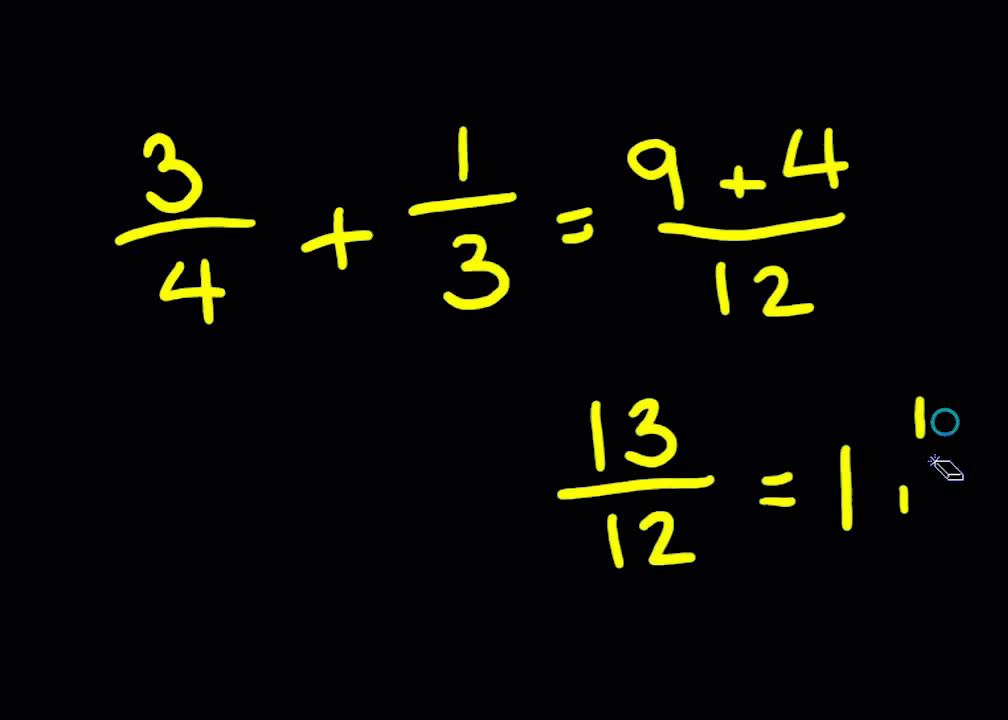 3/4 + 1/3 = 9 + 4/12
13/12 = 1 1